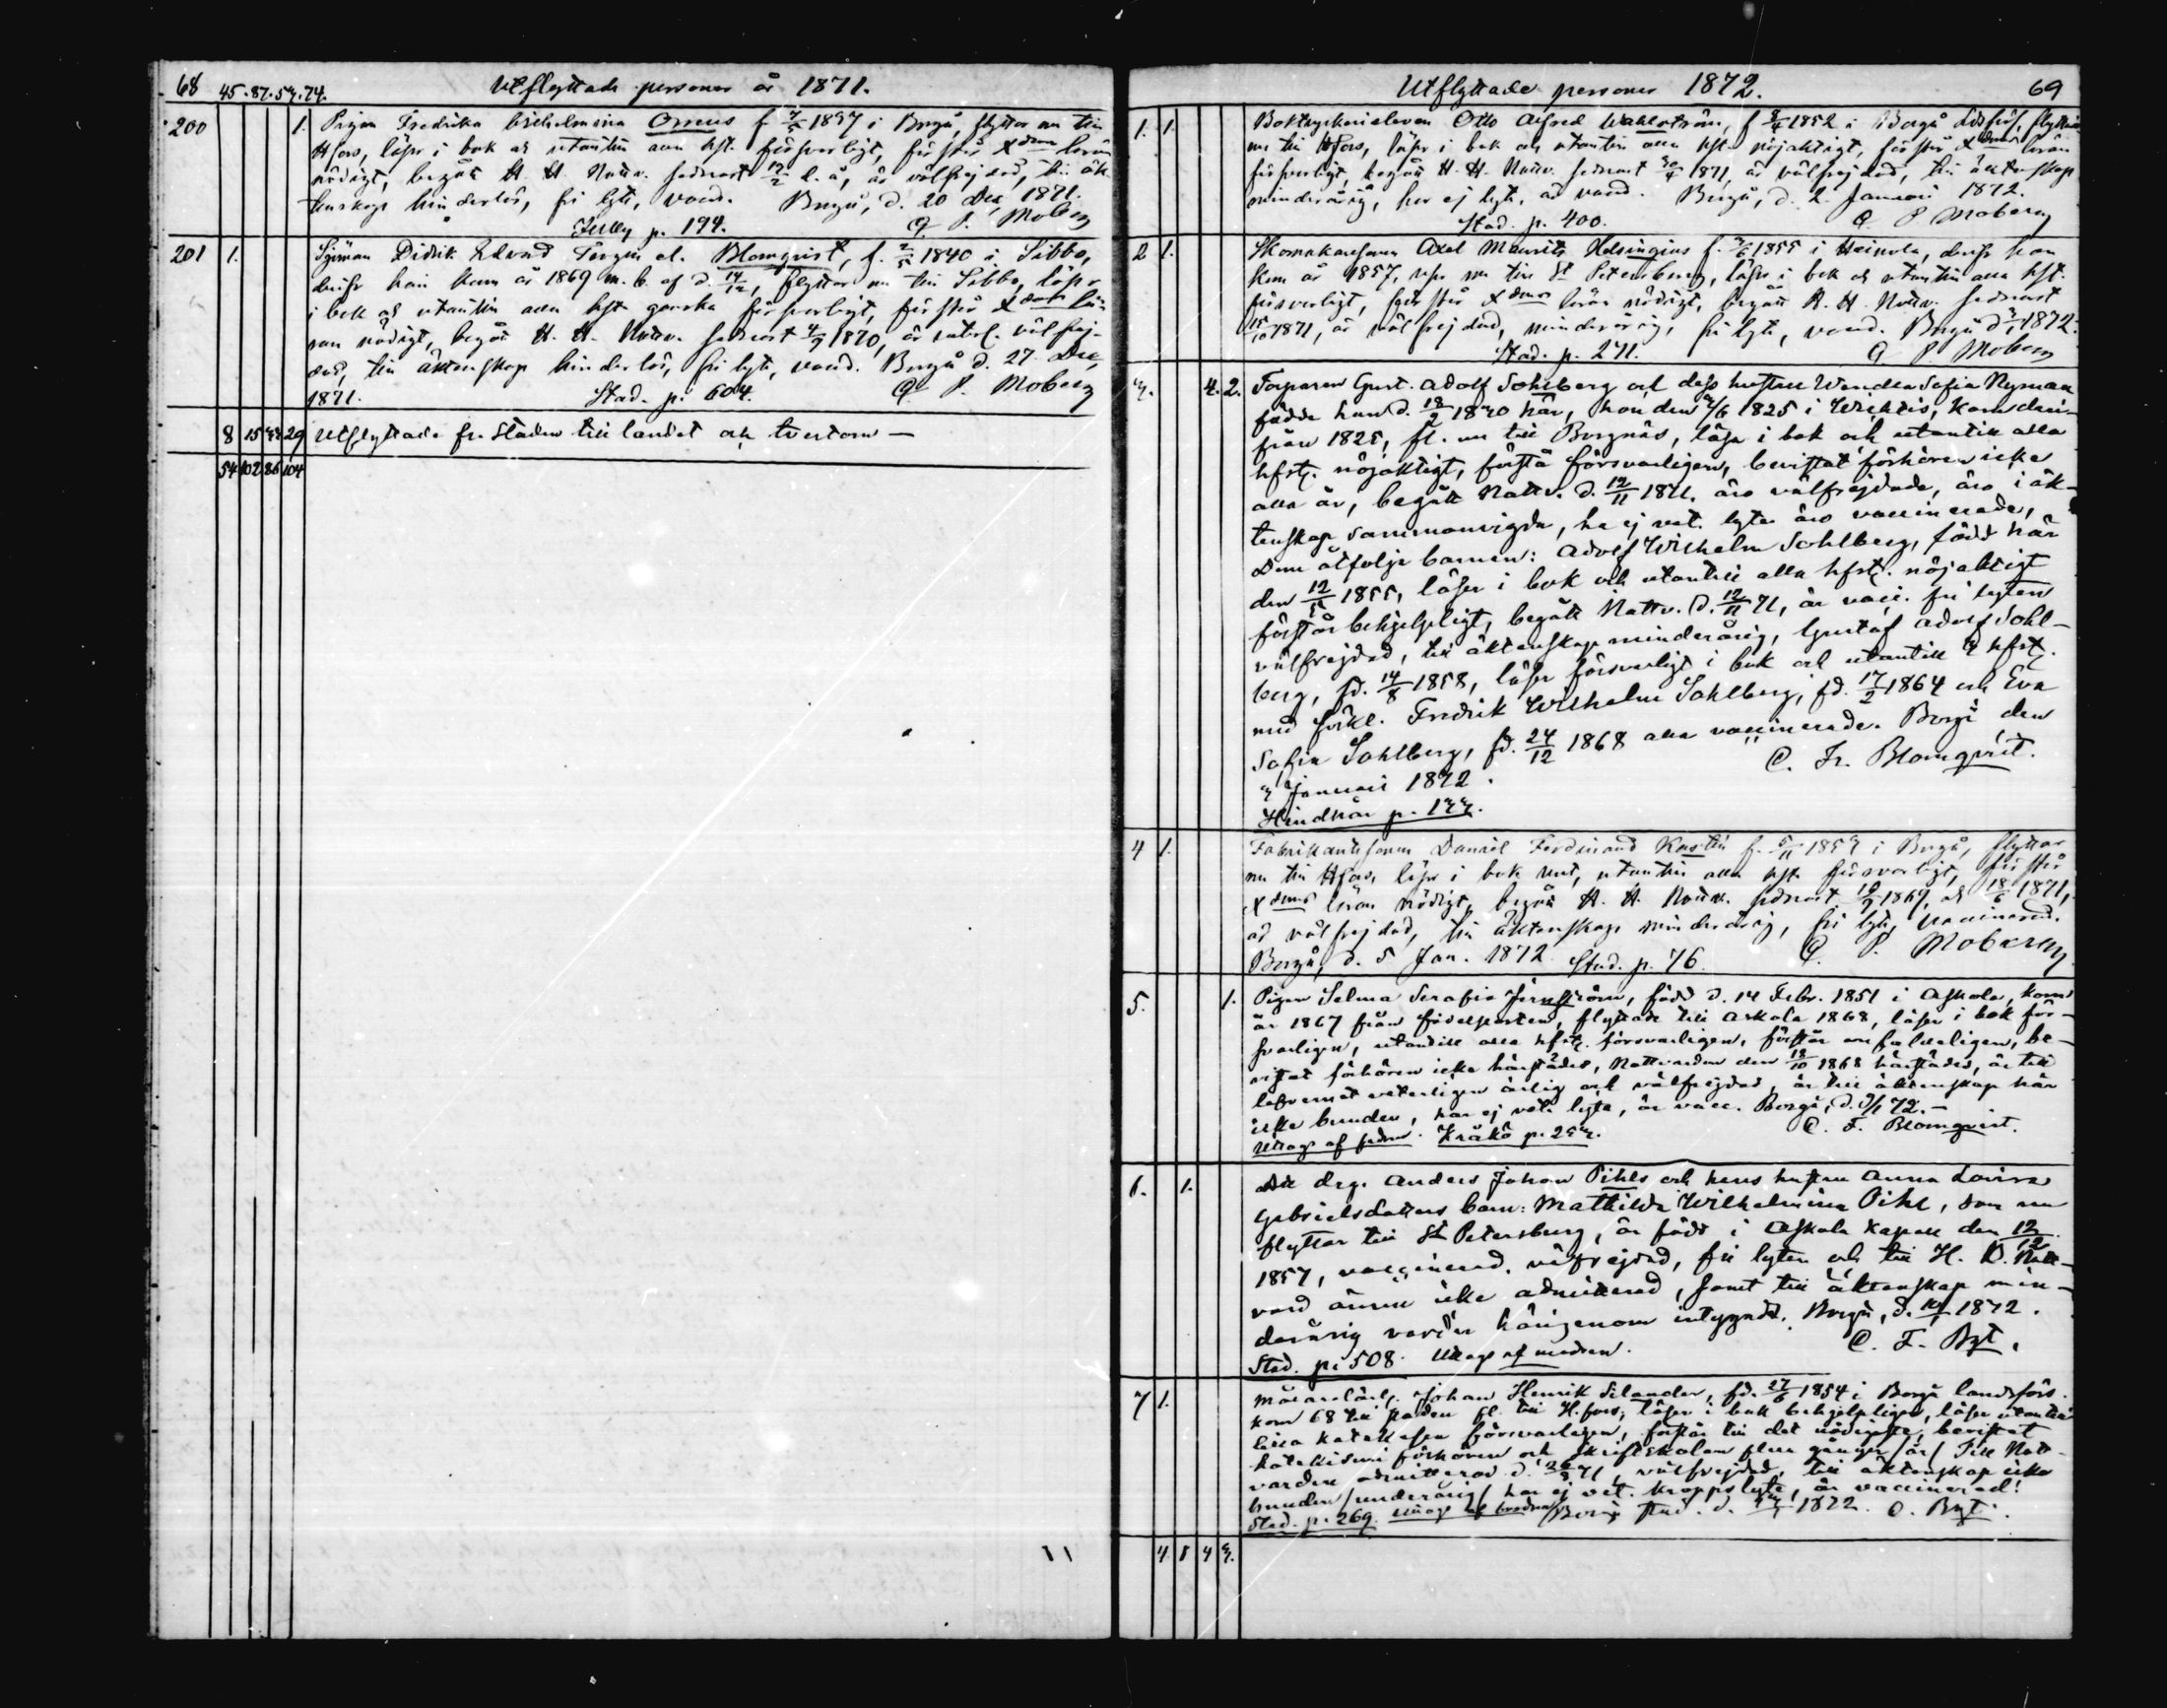 68 45.87.54.74. Utflyttade personer år 1871.
200 1. Pigan Fredrika Wilhelmina Orrcus f. i Borgå, flyttar nu till
Hfors, läser i bok och utantill alla hst. försvarligt, förstår Xdoms läran
nödigt, begått H. H. Nattv. sednast 12/2 d. å., är välfrejdad, till äk-
tenskap hinderlös, fri lyte, vacc. Borgå, d. 20 Dec. 1871.
p. 194. G. P. Moberg
201 1. Didrik Edvard el. Blomqvist, f. 2/5 1840 i Sibbo,
derifr. han kom år 1869 m. b. af d. 14/12, flyttar nu till Sibbo, läser
i bok och utantill alla hst. ganska försvarligt, förstår Xdoms lä-
ran nödigt, begått H. H. Nattv. sednast 4/9 1870, är välfrej-
dad, till äktenskap hinderlös, fri lyte, vacc. Borgå d. 27 Dec.
1871. Stad. p. 604. G. P. Moberg
8 15 43 29 Utflyttade fr. Staden till landet och tvertom —
54 102 86 104
Utflyttade personer 1872. 69
1. 1. Boktryckerieleven Otto Alfred Wahlström, f. 9/4 1852 i Borgå Ldsförs., flyttar
nu till Hfors, läser i bok och utantill alla hst. nöjaktigt, förstår Xdoms läran
försvarligt, begått H. H. Nattv. sednast 30/4 1871, är välfrejdad, till äktenskap
minderårig, har ej lyte, är vacc. Borgå, d. 2 Januari 1872.
Stad. p. 400. G. P. Moberg
2 1. Skomakaresonen Axel Mauritz Helsingius f. 1855 i Heinola, derifr. han
kom år 1857, reser nu till St Petersburg, läser i bok och utantill alla hst.
försvarligt, förstår Xdoms läran nödigt, begått H. H. Nattv. sednast
15/10 1871, är välfrejdad, minderårig, fri lyte, vacc. Borgå d. 1872.
Stad. p. 271. G. P. Moberg
3. 4. 2. Torparen Gust. Adolf Sohlberg och dess hustru Wendla Sofia Nyman
födde han d. 18/2 här, hon den 1825 i Wichtis, kom deri-
från fl. nu till Borgnäs, läsa i bok och utantill alla
hfst. nöjaktigt, förstå försvarligen, bevistat förhören icke
alla år, begått Nattv. d. 12/11 1871. äro välfrejdade, äro i äk-
tenskap sammanvigda, ha ej vet. lyte äro vaccinerade,
Dem åtfölje barnen: Adolf Wilhelm Sohlberg, född här
den 12/5 1855, läser i bok och utantill alla hfst. nöjaktigt
förstår behjelpligt, begått Nattv. d. 12/11 71, är vacc. fri lyten
välfrejdad, till äktenskap minderårig, Gustaf Adolf Sohl-
berg, fd. 14/8 1858, läser försvarligt i bok och utantill 3 hfst.
med förkl. Fredrik Wilhelm Sohlberg, fd. 17/2 1864 och Eva
Sofia Sohlberg, fd. 24/12 1868 alla vaccinerade. Borgå den
3 Januari 1872. C. Fr. Blomqvist.
Hindhår p. 133.
4 1. Fabrikantsonen Daniel Ferdinand f. 5/11 1853 i Borgå, flyttar
nu till Hfors, läser i bok rent, utantill alla hst. försvarligt, förstår
Xdoms läran nödigt, begått H. H. Nattv. sednast 1869, och 18/6 1871,
är välfrejdad, till äktenskap minderårig, fri lyte, vaccinerad.
Borgå, d. 5 Jan. 1872 Stad. p. 76. G. P. Moberg
5. 1. Pigan Selma Serafia Jernström, född d. 14 Febr. 1851 i Askola, kom
år 1867 från födelseorten, flyttade till Askola 1868, läser i bok för-
svarligen, utantill alla hfst. försvarligen, förstår enfaldeligen, be-
vistat förhören icke härstädes, Nattvarden den 18/10 1868 härstädes, är till
lefvernet veterligen ärlig och välfrejdad, är till äktenskap här
icke bunden, har ej vet. lyte, är vacc. Borgå, d. 9/1 72. —
Uttogs af Kråkö p. 253. C. F. Blomqvist.
6. 1. drg. Anders Johan Pihls och hans hustru Anna Lovisa
Gabrielsdotters barn: Mathilda Wilhelmina Pihl, som nu
flyttar till St Petersburg, är född i Askola kapell den 12/12
1857, vaccinerad, välfrejdad, fri lyten och till H. H. Natt-
vard ännu icke admitterad, samt till äktenskap min-
derårig varder härigenom intygadt. Borgå, d. 1872.
Stad. p. 508. Uttogs af modren. C. F. Bqt.
7 1. Målarelärl. Johan Henrik Silander, fd. 27/6 1854 i Borgå landsförs.
kom 68 till staden fl. till H.fors, läser i bok behjelpligen, läser utantill
lilla katekesen försvarligen, förstår till det nödigaste, bevistat
katekismi förhören och skriftskolan flera gånger Till Natt-
varden admitterad d. 71, välfrejdad, till äktenskap icke
bunden /underårig/ har ej vet. kroppslyte, är vaccinerad!
Stad. p. 269. Uttogs af Borgå stad. d. 1872. C. Bqt.
4 1 4 3.